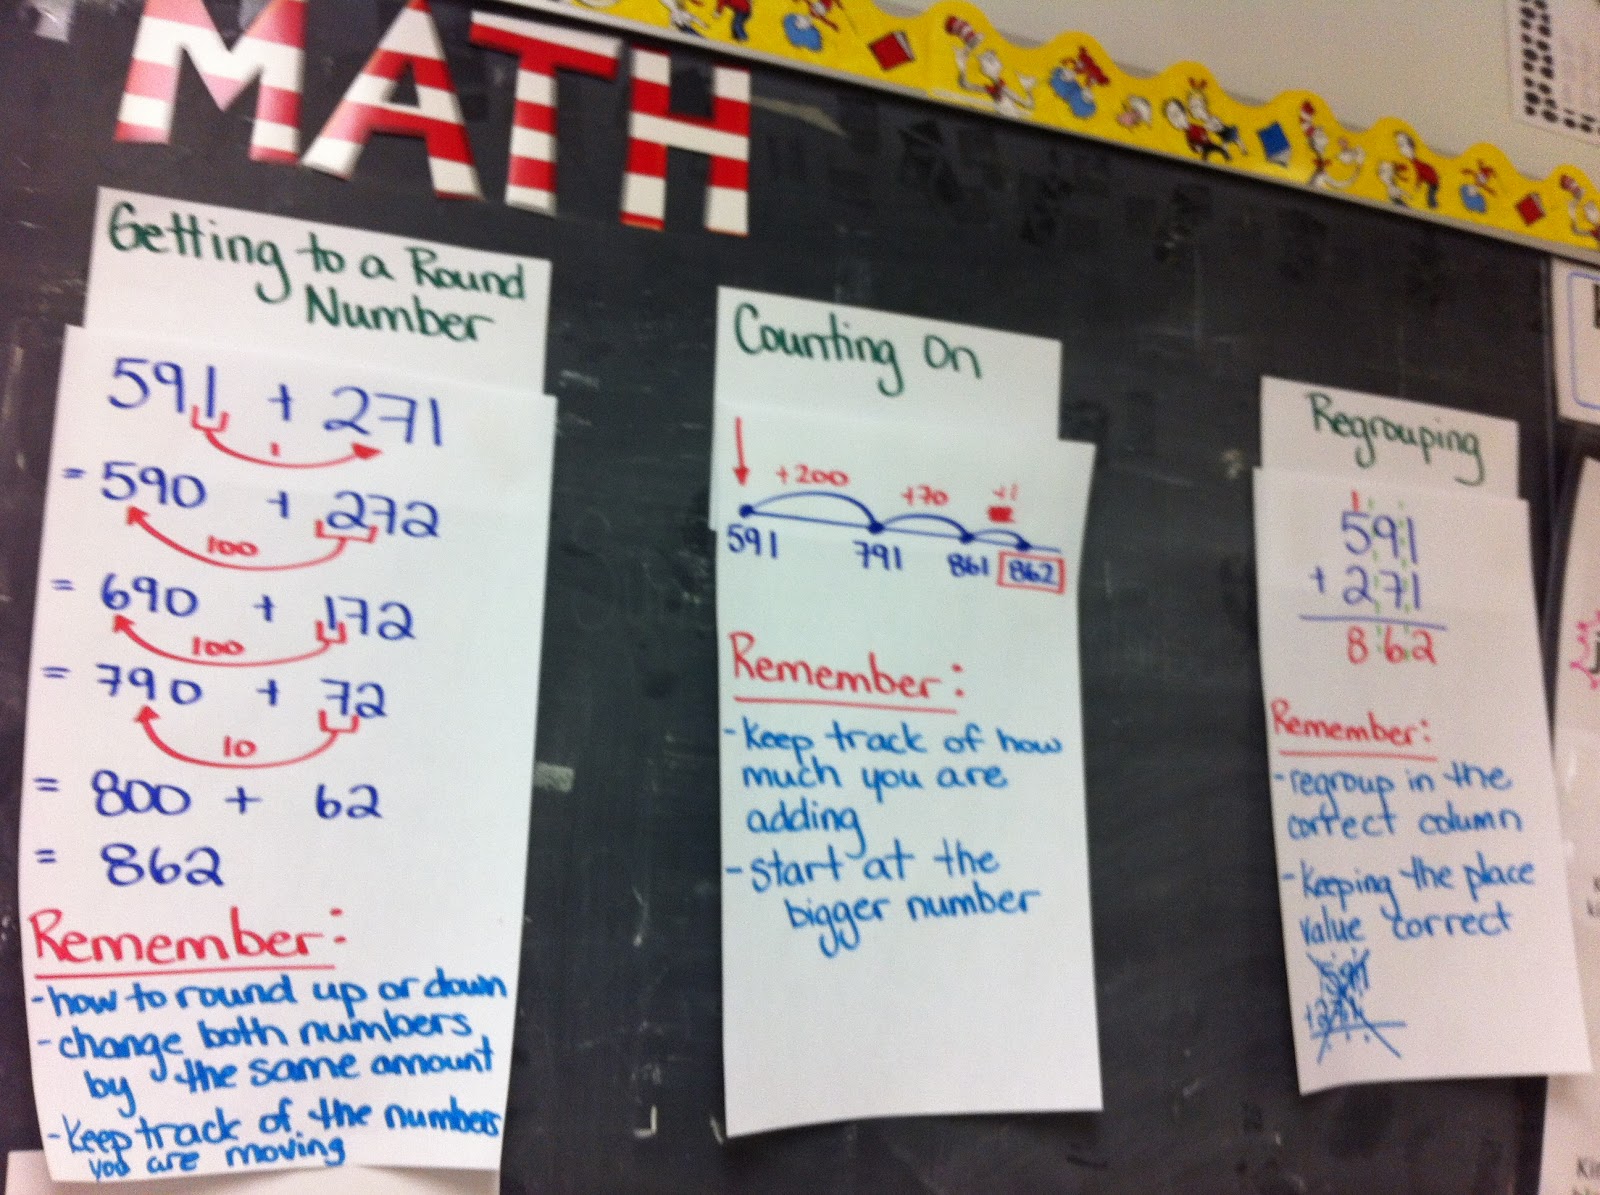 MATH
Getting to a Round
Number
591 + 271
1
= 590 + 272
100
= 690 + 172
100
= 790 + 72
10
= 800 + 62
= 862
Remember:
- how to round up or down
- change both numbers
by the same amount
- Keep track of the numbers
you are moving
Counting On
+200 +70 +1
591 791 861 862
Remember:
- Keep track of how
much you are
adding
- start at the
bigger number
Regrouping
1
591
+ 271
862
Remember:
- regroup in the
correct column
- Keeping the place
value correct